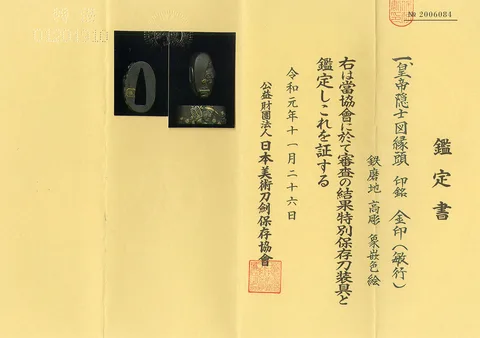 № 2006084
鑑定書
一、皇帝隠士図縁頭 印銘 金印(敏行)
鉄磨地 高彫 象嵌色絵
右は當協會に於て審査の結果特別保存刀装具と
鑑定しこれを証する
令和元年十一月二十六日
公益財團法人 日本美術刀劍保存協會